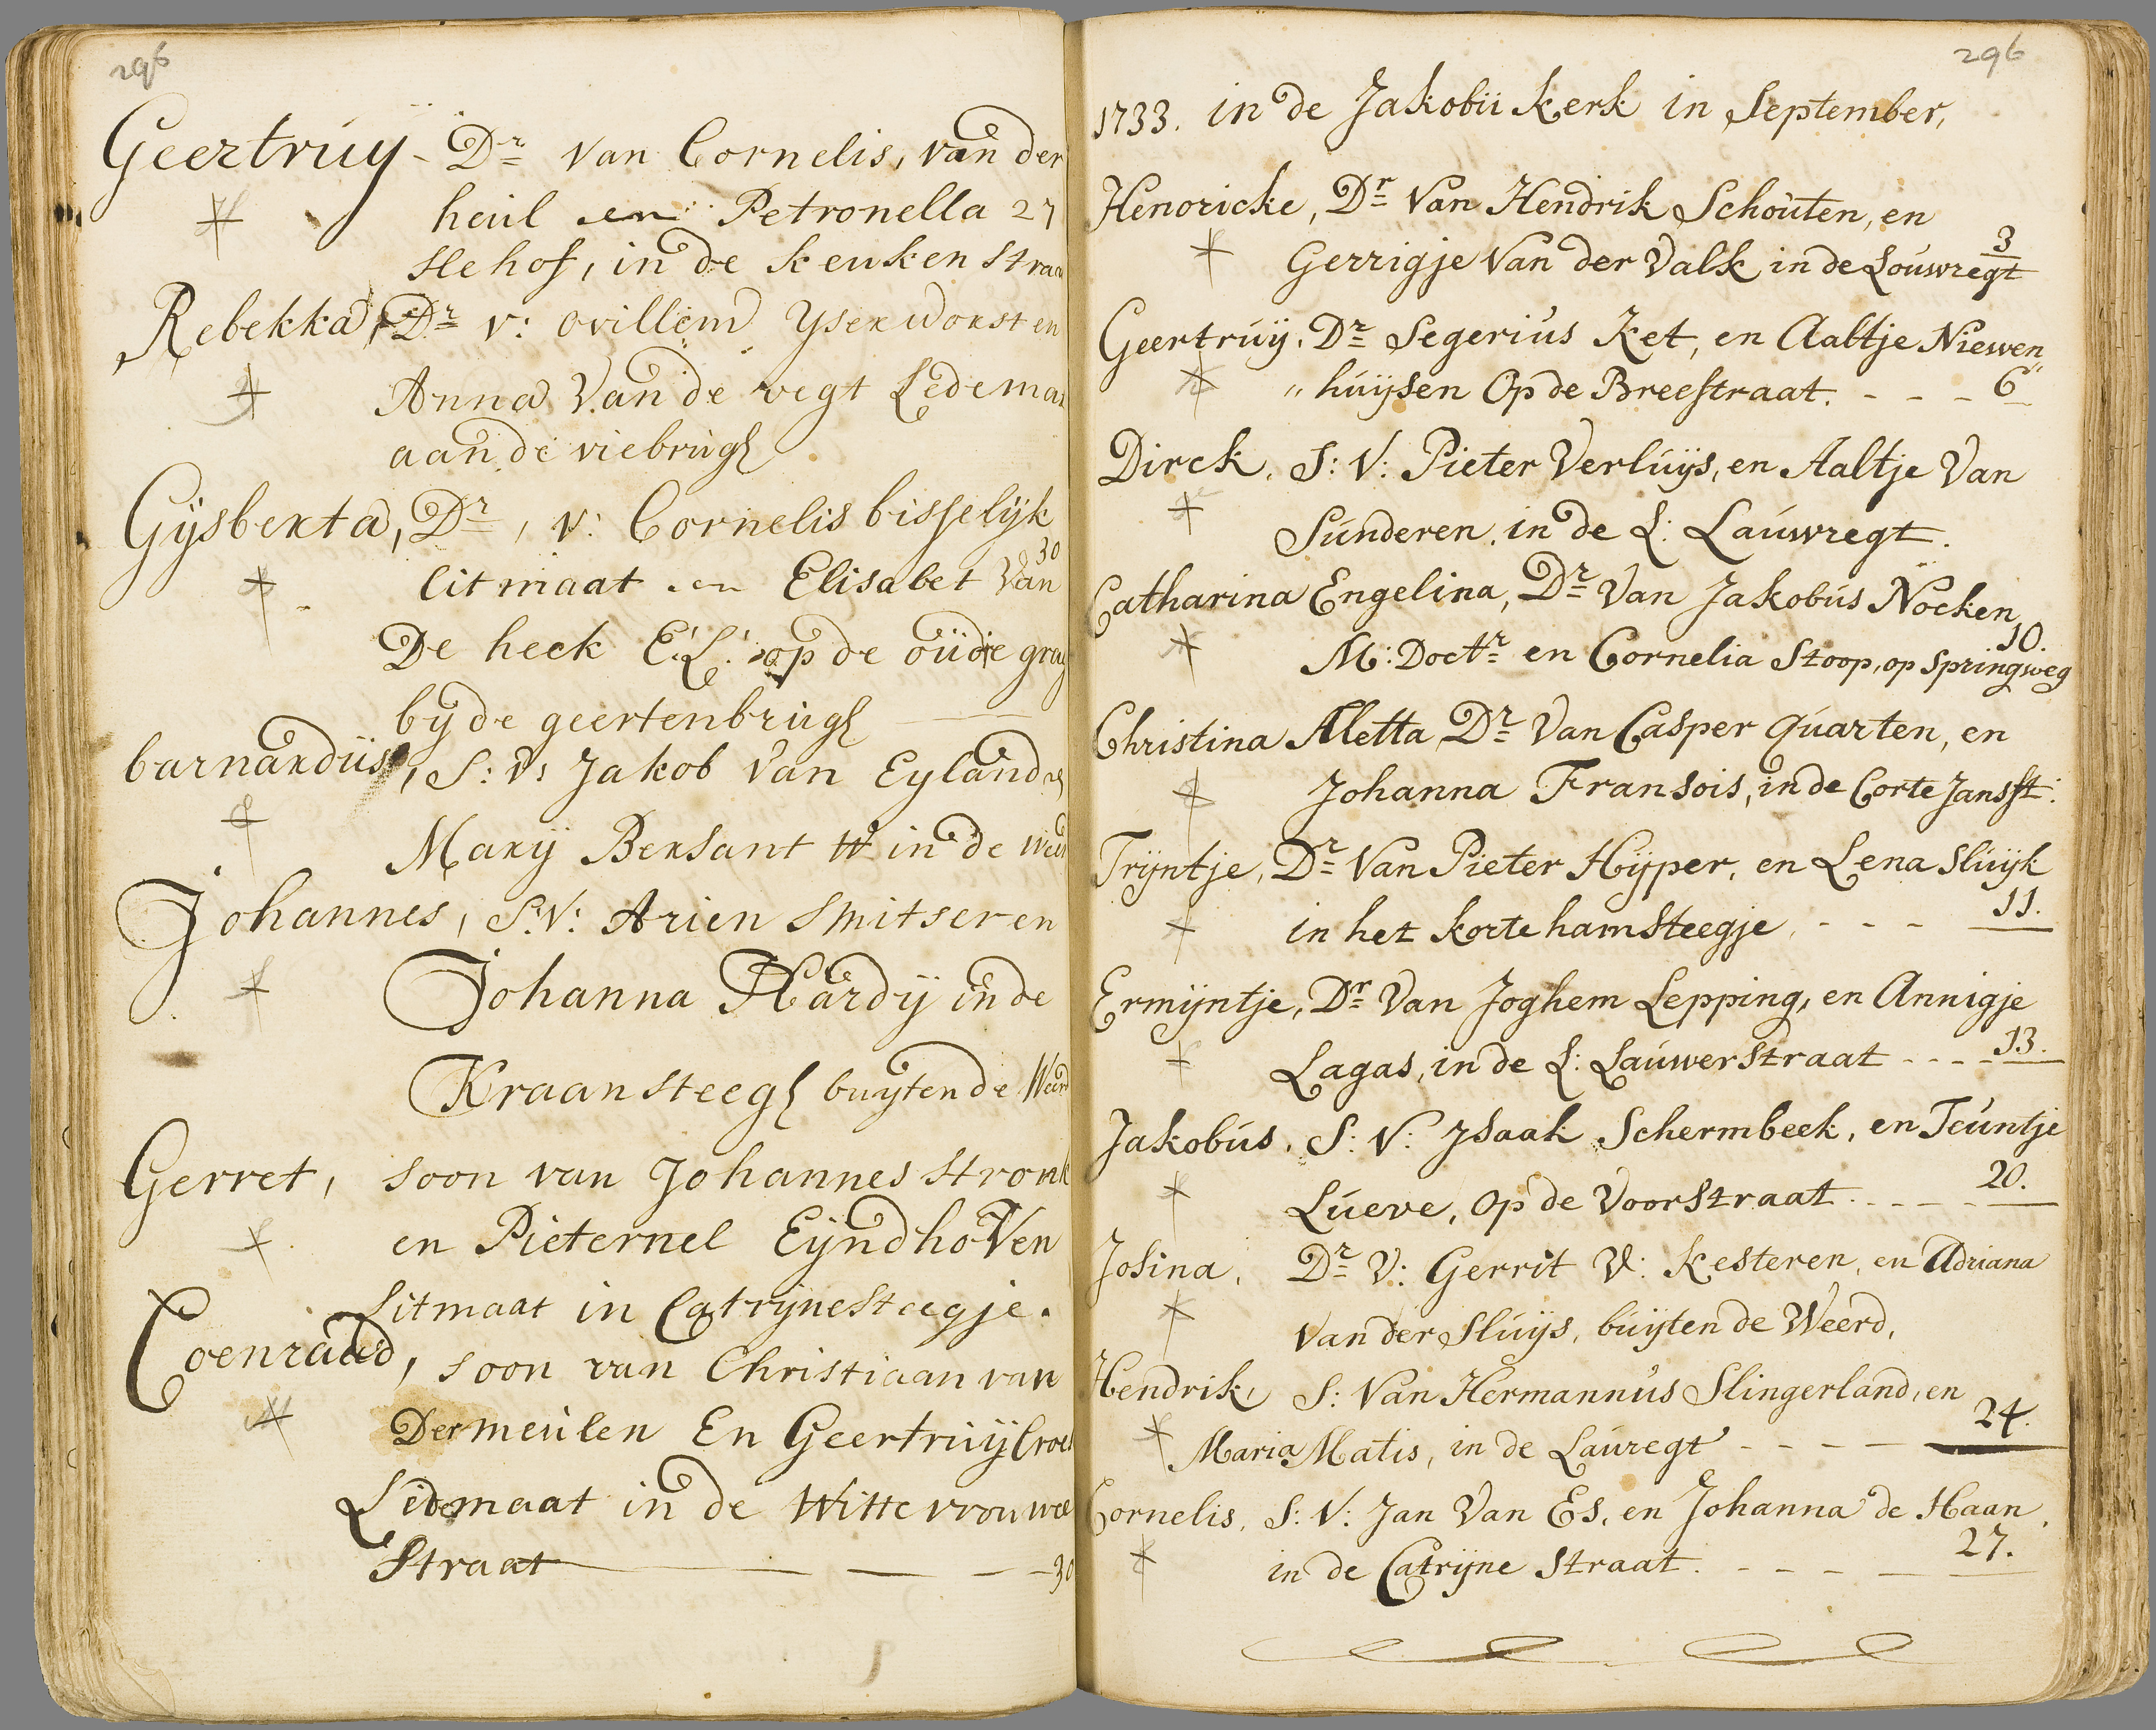 296
Geertruy - Dr van Cornelis, van der
heul en Petronella 27
slehof, in de keuken straa
Rebekka, Dr v: willem yservorst en
Anna Van de vegt Ledemaa
aan de viebrug
Gysberta, Dr, v: Cornelis bisselyk
30
litmaat en Elisabet Van
De heek E:L: op de oude gra
by de geertenbrug
barnardus, S: v: Jakob van Eyland
Mary Bersant in de
Johannes, S:V: Arien smitser en
Johanna Hardy in de
Kraansteeg buyten de Weerd
Gerret, soon van Johannes stronk
en Pieternel Eyndhoven
Litmaat in Catrynesteegje.
Coenraad, soon van Christiaan van
Dermeulen En Geertruy
Lidmaat in de Witte vrouwe
Straat 30
296
1733. in de Jakobii kerk in September,
Henoricke, Dr Van Hendrik Schouten, en
3
Gerrigje Van der Valk in de Louwregt
Geertruy, Dr Segerius Ket, en Aaltje Niewen
"huysen Op de Breestraat. - - - 6
Dirck, S: V: Pieter Verluys, en Aaltje Van
Sunderen, in de L: Lauwregt.
Catharina Engelina, Dr Van Jakobus Nocken
10.
M: Doctr en Cornelia Stoop, op Springweg
Christina Aletta Dr Van Casper Quarten, en
Johanna Fransois, in de Corte Jansst:
Tryntje, Dr Van Pieter Hyper, en Lena Sluyk
in het korte hamsteegje - - - 11.
Ermyntje, Dr Van Joghem Lepping, en Annigje
Lagas, in de L: Lauwerstraat - - - 13.
Jakobus, S: V: Jsaak Schermbeek, en Teuntje
Lueve, op de Voorstraat. - - - 20.
Josina, Dr V: Gerrit V: Kesteren, en Adriana
van der Sluys, buyten de Weerd,
Hendrik, S: Van Hermannus Slingerland, en
Maria Matis, in de Lauregt - - - - 24.
Cornelis, S: V: Jan Van Es, en Johanna de Haan,
in de Catryne Straat. - - - - 27.